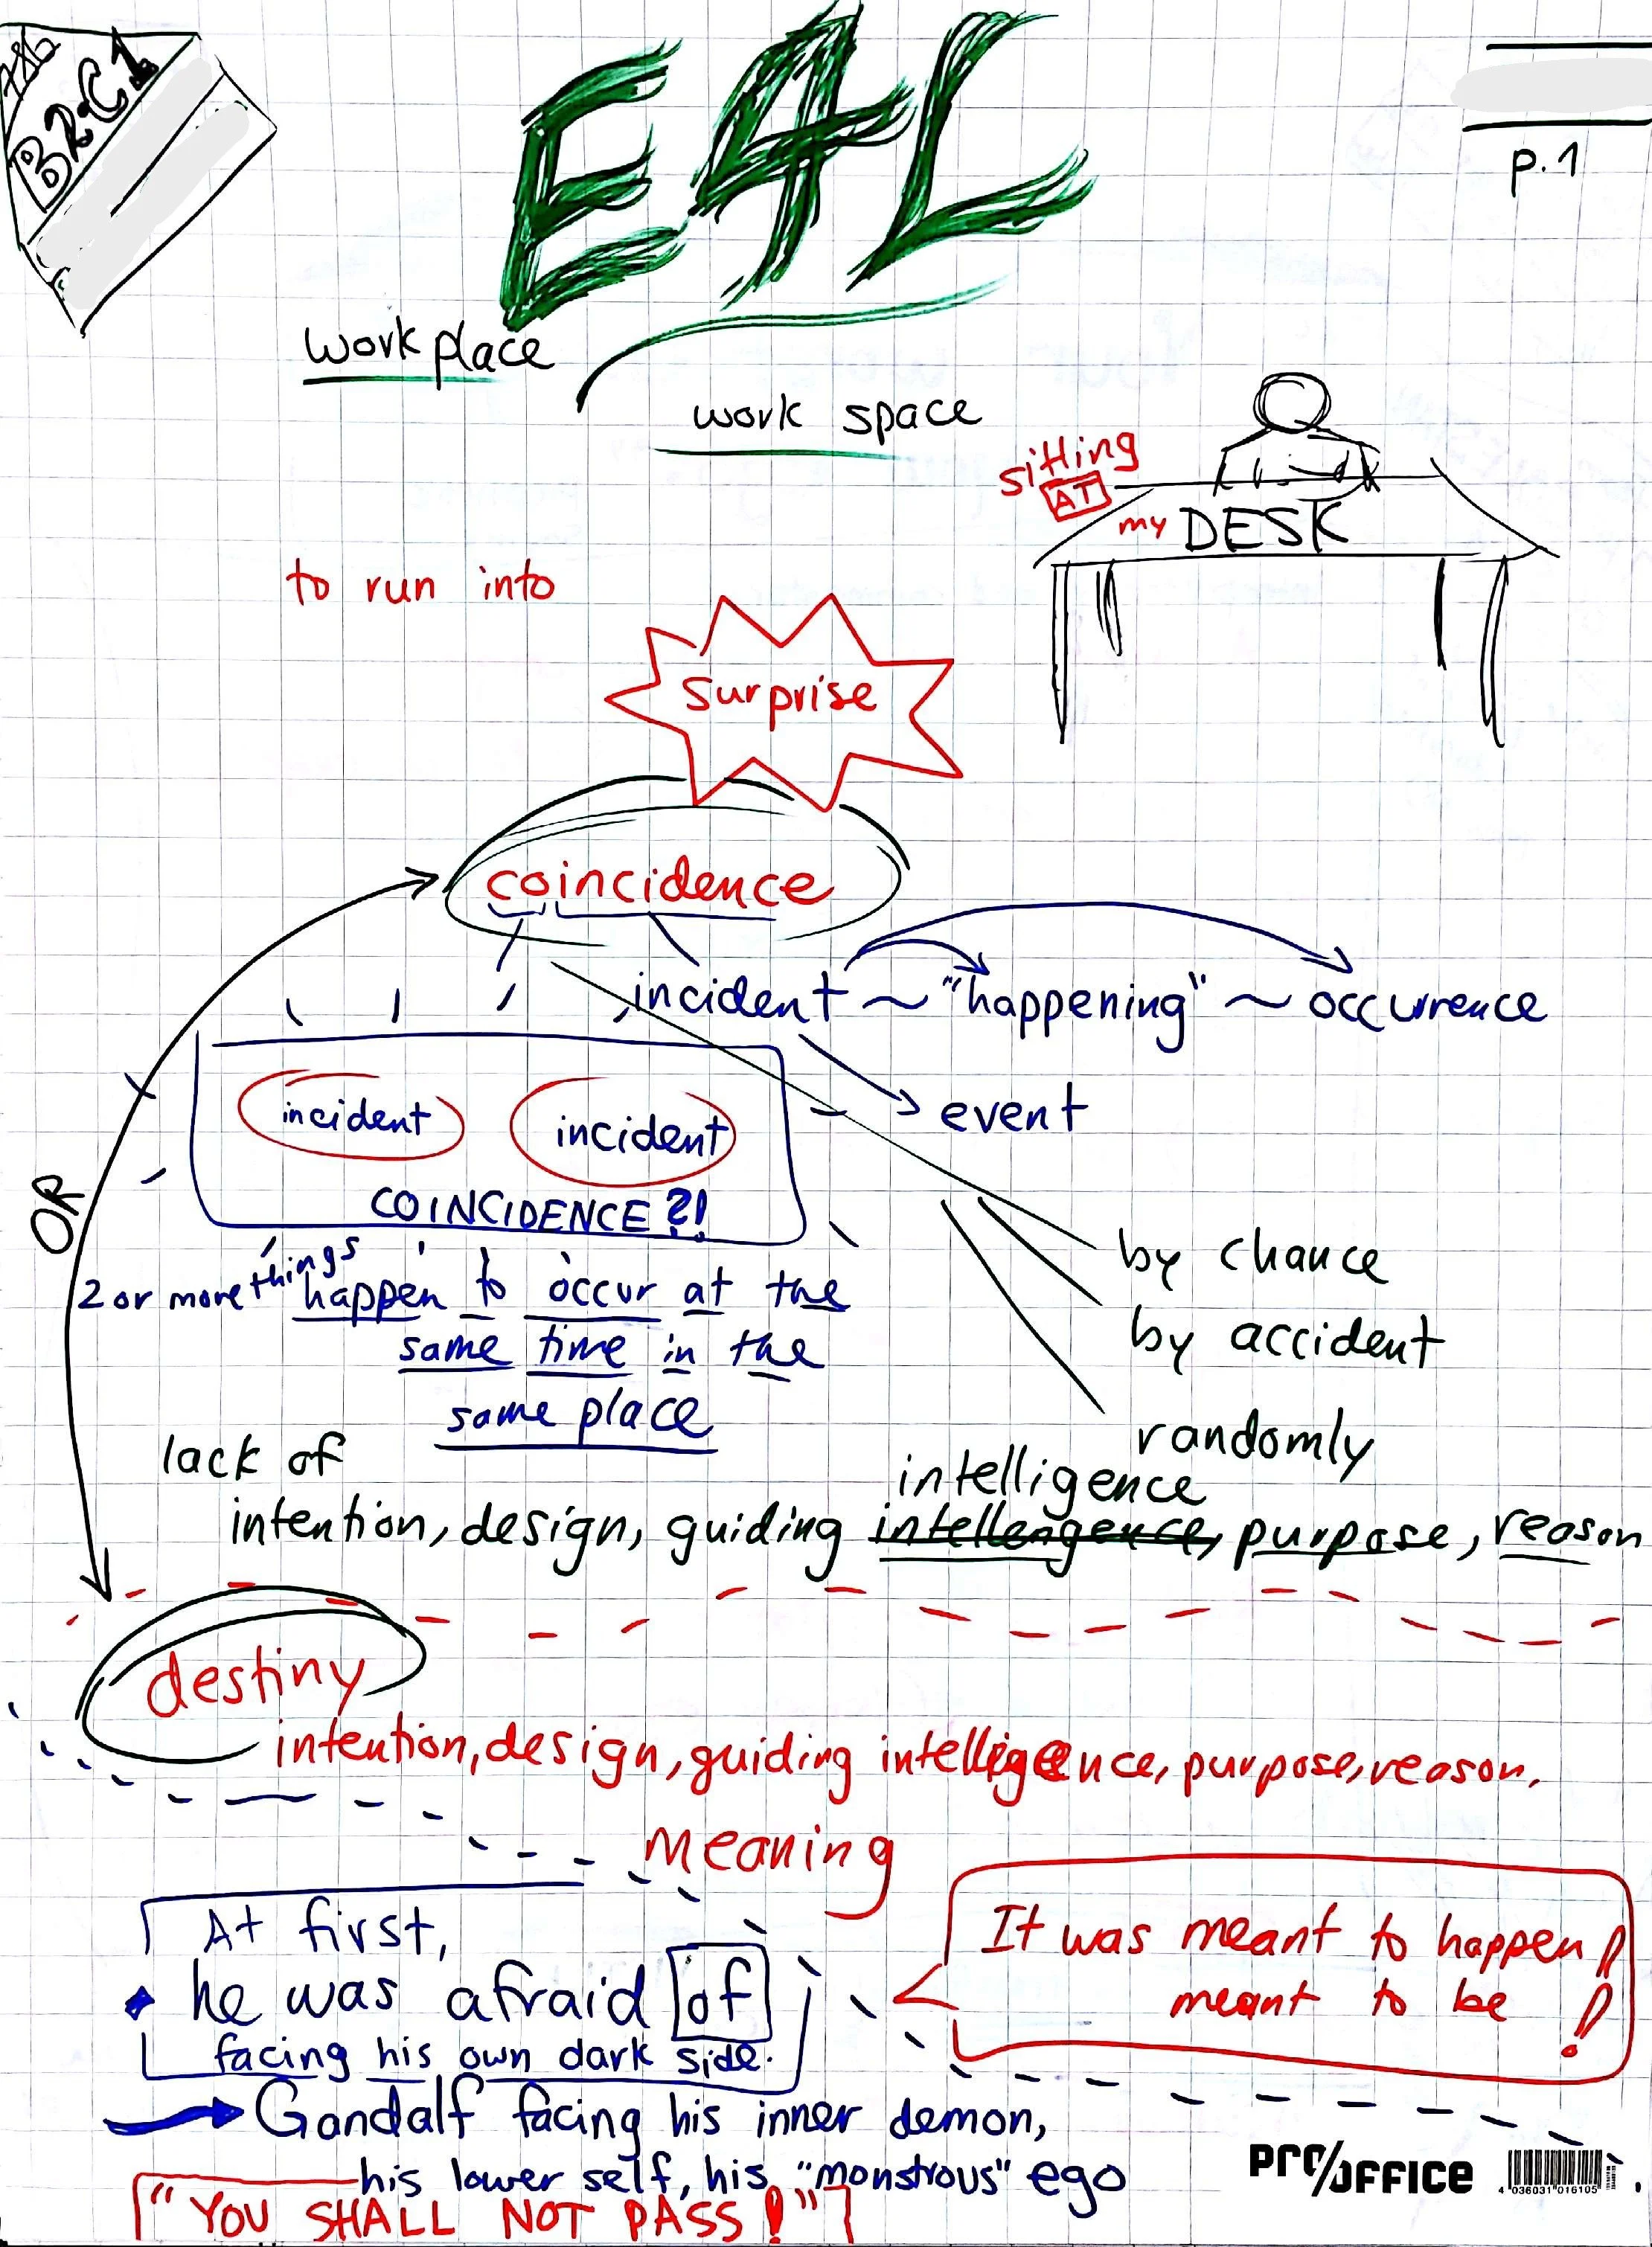 B2-C1
E4L
p.1
work place
work space
sitting
AT
my DESK
to run into
surprise
coincidence
incident ~ "happening" ~ occurrence
incident incident
event
COINCIDENCE?!
OR
by chance
2 or more things happen to occur at the
by accident
same time in the
same place
randomly
lack of
intelligence
intention, design, guiding intellengence, purpose, reason
destiny
intention, design, guiding intelligence, purpose, reason.
Meaning
At first,
he was afraid of
facing his own dark side.
It was meant to happen!
meant to be!
Gandalf facing his inner demon,
his lower self, his "monstrous" ego
"YOU SHALL NOT PASS!"
PRO/OFFICE
4 036031 016105